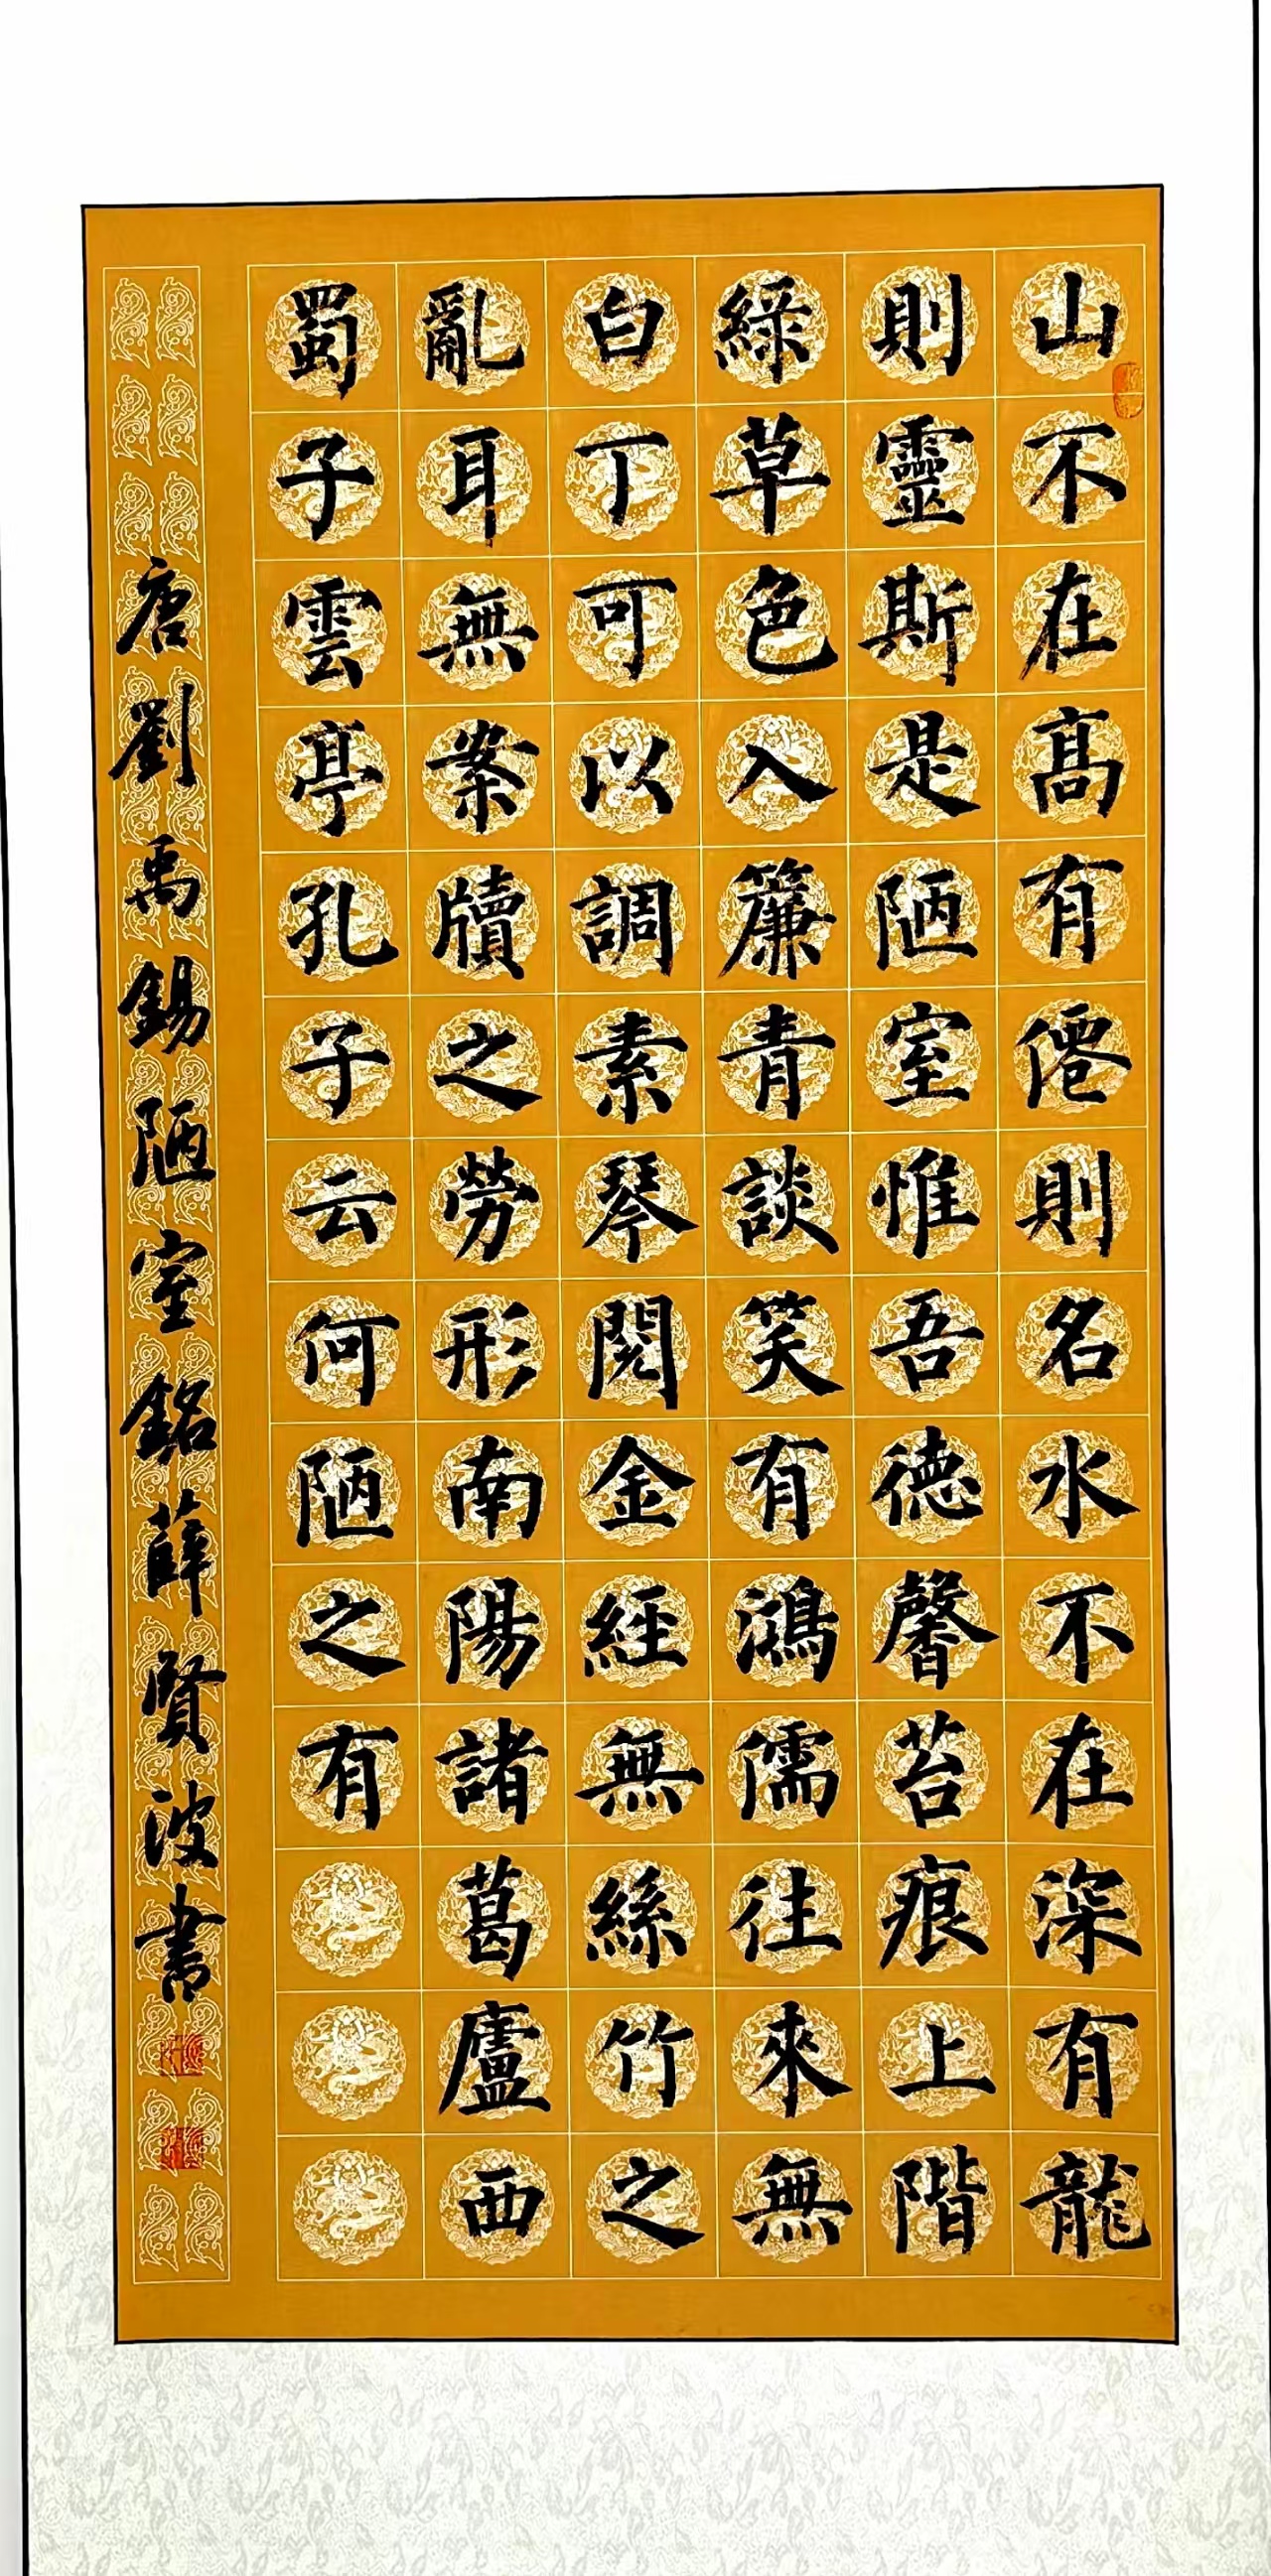 山不在高有僊則名水不在深有龍
則靈斯是陋室惟吾德馨苔痕上階
綠草色入簾青談笑有鴻儒往來無
白丁可以調素琴閱金經無絲竹之
亂耳無案牘之勞形南陽諸葛廬西
蜀子雲亭孔子云何陋之有
唐劉禹錫陋室銘薛賢波書